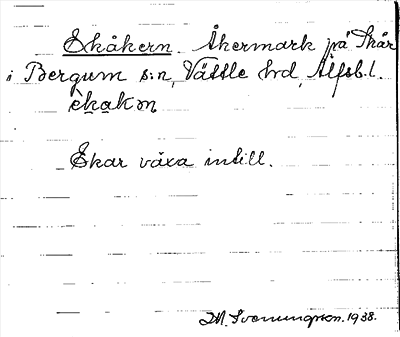 Ekåkern. Åkermark på Skår
i Bergum s:n, Vättle hd, Älfsb.l.
ekakm
Ekar växa intill.
M. Svenungsson. 1938.